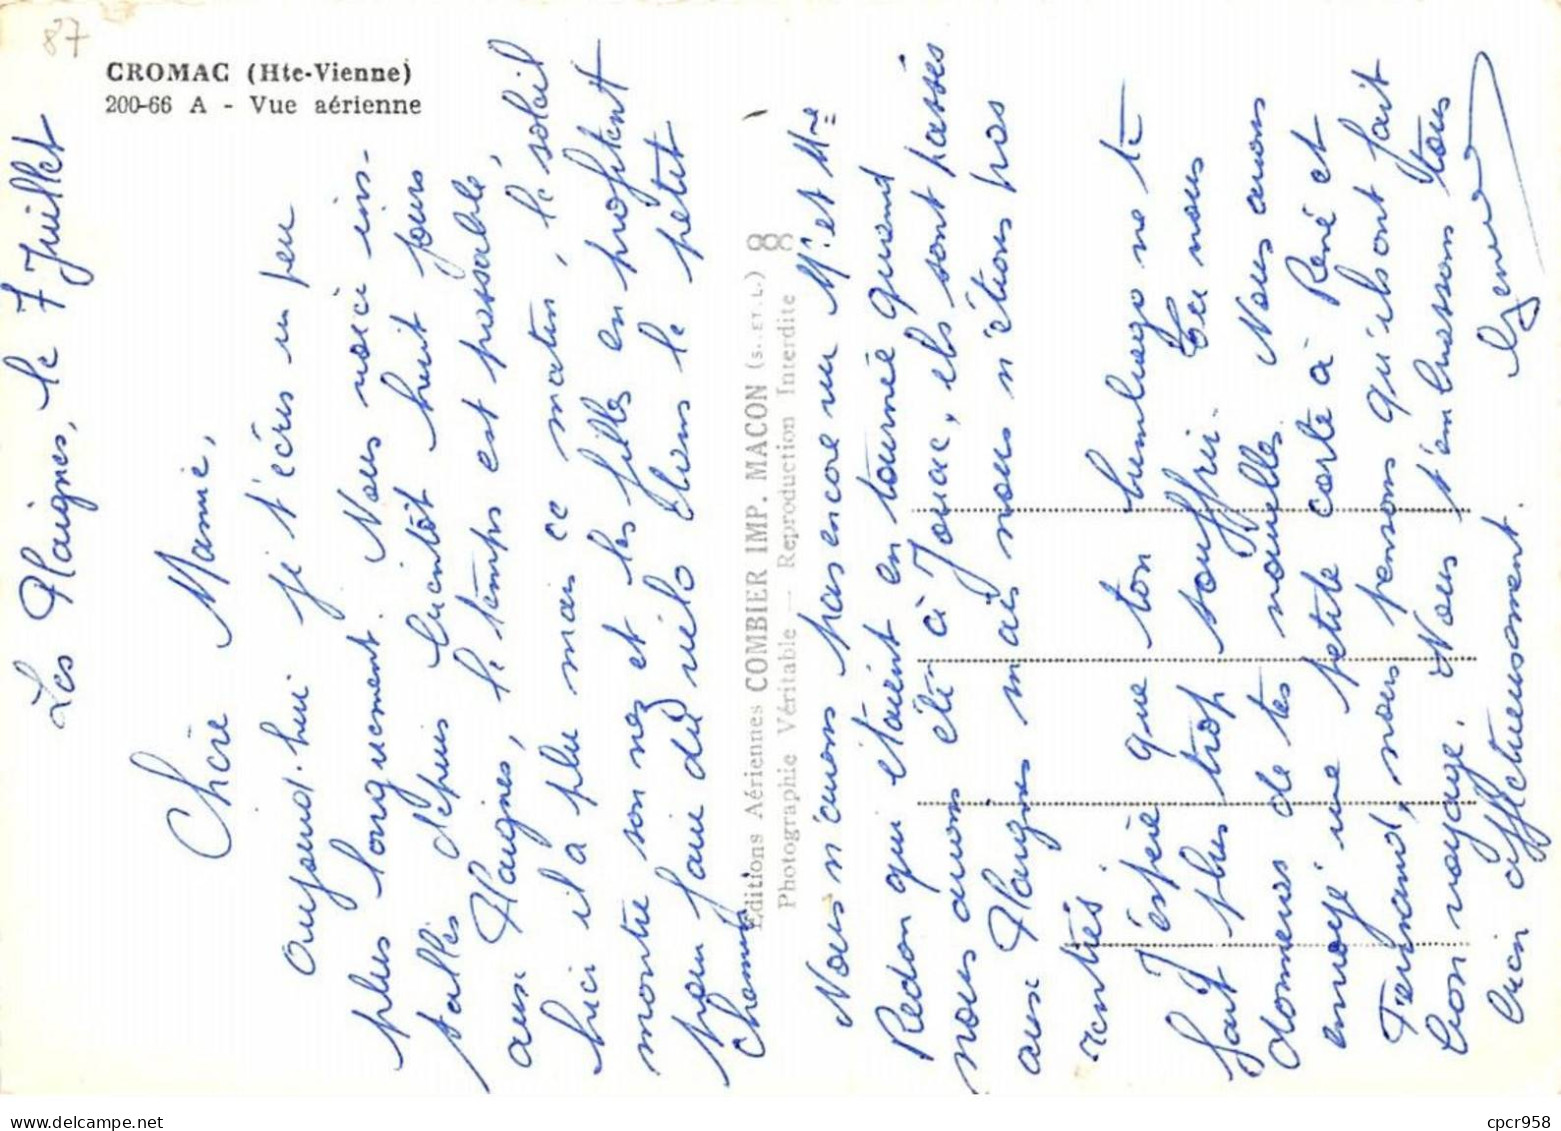 87
CROMAC (Hte-Vienne)
200-66 A - Vue aérienne
Les Plaignes, le 7 Juillet
Chère Mamie,
Aujourd'hui je t'écris un peu
plus longuement. Nous voici ins-
tallés depuis bientôt huit jours
aux Plaignes, le temps est passable,
hier il a plu mais ce matin, le soleil
montre son nez et les filles en profitent
pour faire du vélo dans le petit
chemin.
Editions Aériennes COMBIER IMP. MACON (S.. ET. L.)
Photographie Véritable — Reproduction Interdite
Nous n'avons pas encore vu Mr et Mme
Redon qui étaient en tournée quand
nous avons été à Jouac, ils sont passés
aux Plaignes mais nous n'étions pas
rentrés.
J'espère que ton lumbago ne te
fait plus trop souffrir. Tu nous
donneras de tes nouvelles. Nous avons
envoyé une petite carte à René et
Fernand, nous pensons qu'ils ont fait
bon voyage. Nous t'embrassons tous
bien affectueusement.
delcampe.net
cpcr958